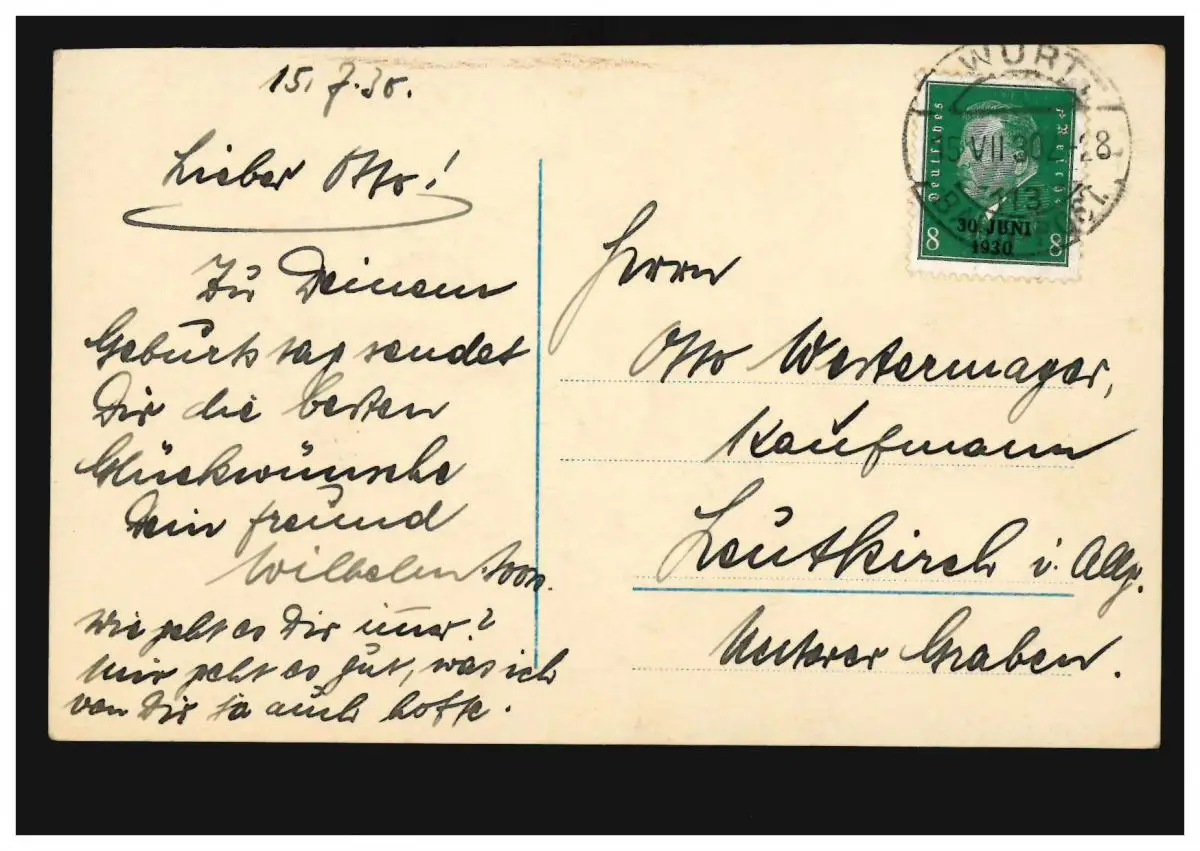 15.7.30.
Lieber Otto!
Zu Deinem
Geburtstag sendet
Dir die besten
Glückwünsche
Dein Freund
Wilhelm
Wie geht es Dir immer?
Mir geht es gut, was ich
von Dir ja auch hoffe.
WÜRTT.
Deutsches Reich
15 VII 30
30. JUNI
1930
8 8
Herrn
Otto Westermayer,
Kaufmann
Leutkirch i. Allg.
Unterer Graben.